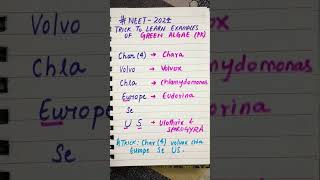 # NEET-2024
TRICK TO LEARN EXAMPLES
OF GREEN ALGAE (PK)
Char (4) → Chara
Volvo → Volvox
Chla → Chlamydomonas
Europe → Eudorina
Se
U S → Ulothrix &
SPIROGYRA
#TRICK: Char (4) volvox chla
Europe Se US.